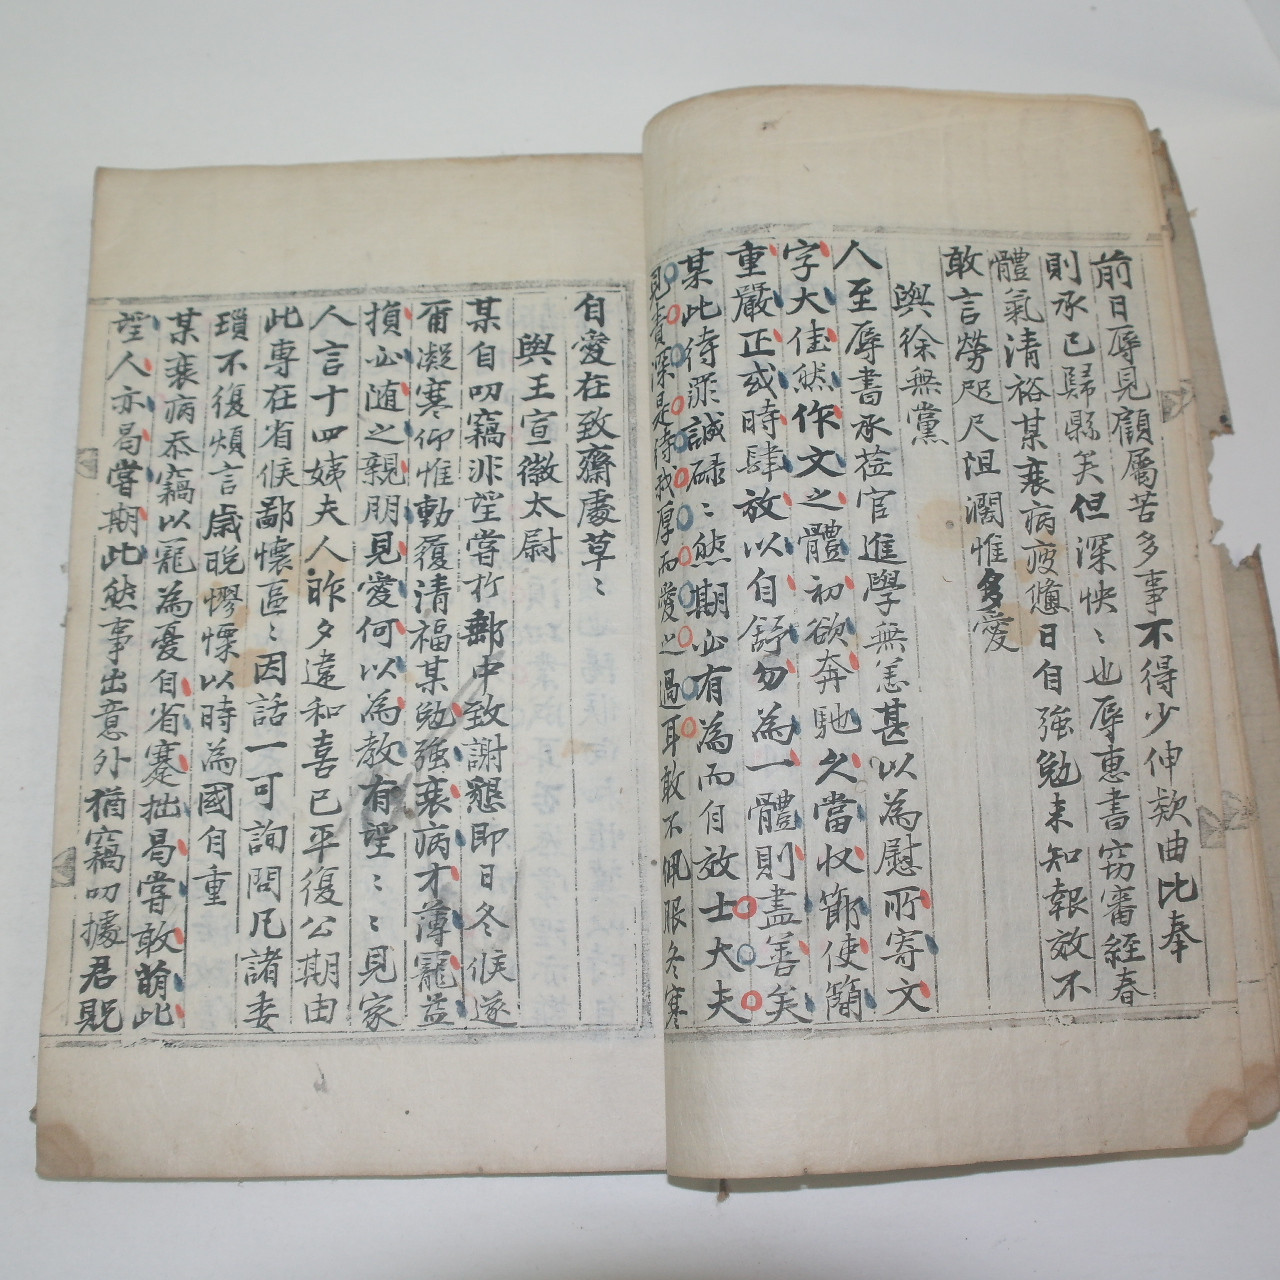 前日辱見顧屬苦多事不得少伸欵由比奉
則承已歸縣矣但深怏〻也辱惠書窃審經春
體氣清裕某衰病疲憊日自強勉未知報效不
敢言勞咫尺阻濶惟多愛
與徐無黨
人至辱書承莅官進學無恙甚以為慰所寄文
字大佳然作文之體初欲奔馳久當收節使簡
重嚴正或時肆放以自舒勿為一體則盡善矣
某此待罪誠碌〻然期必有為而自效士大夫
見責深是待我厚而愛之過耳敢不佩服冬寒
自愛在致齋處草〻
與王宣徽太尉
某自叨竊非望嘗於郵中致謝懇即日冬候遂
爾凝寒仰惟動履清福某勉強衰病才薄寵益
損必随之親朋見愛何以為教有望〻〻見家
人言十四姨夫人昨夕違和喜已平復公期由
此專在省候鄙懷區〻因話一可詢問凡諸委
瑣不復煩言歲晚慘慄以時為國自重
某衰病忝竊以寵為憂自省蹇拙曷嘗敢萌此
望人亦曷嘗期此然事出意外猶竊叨據君貺